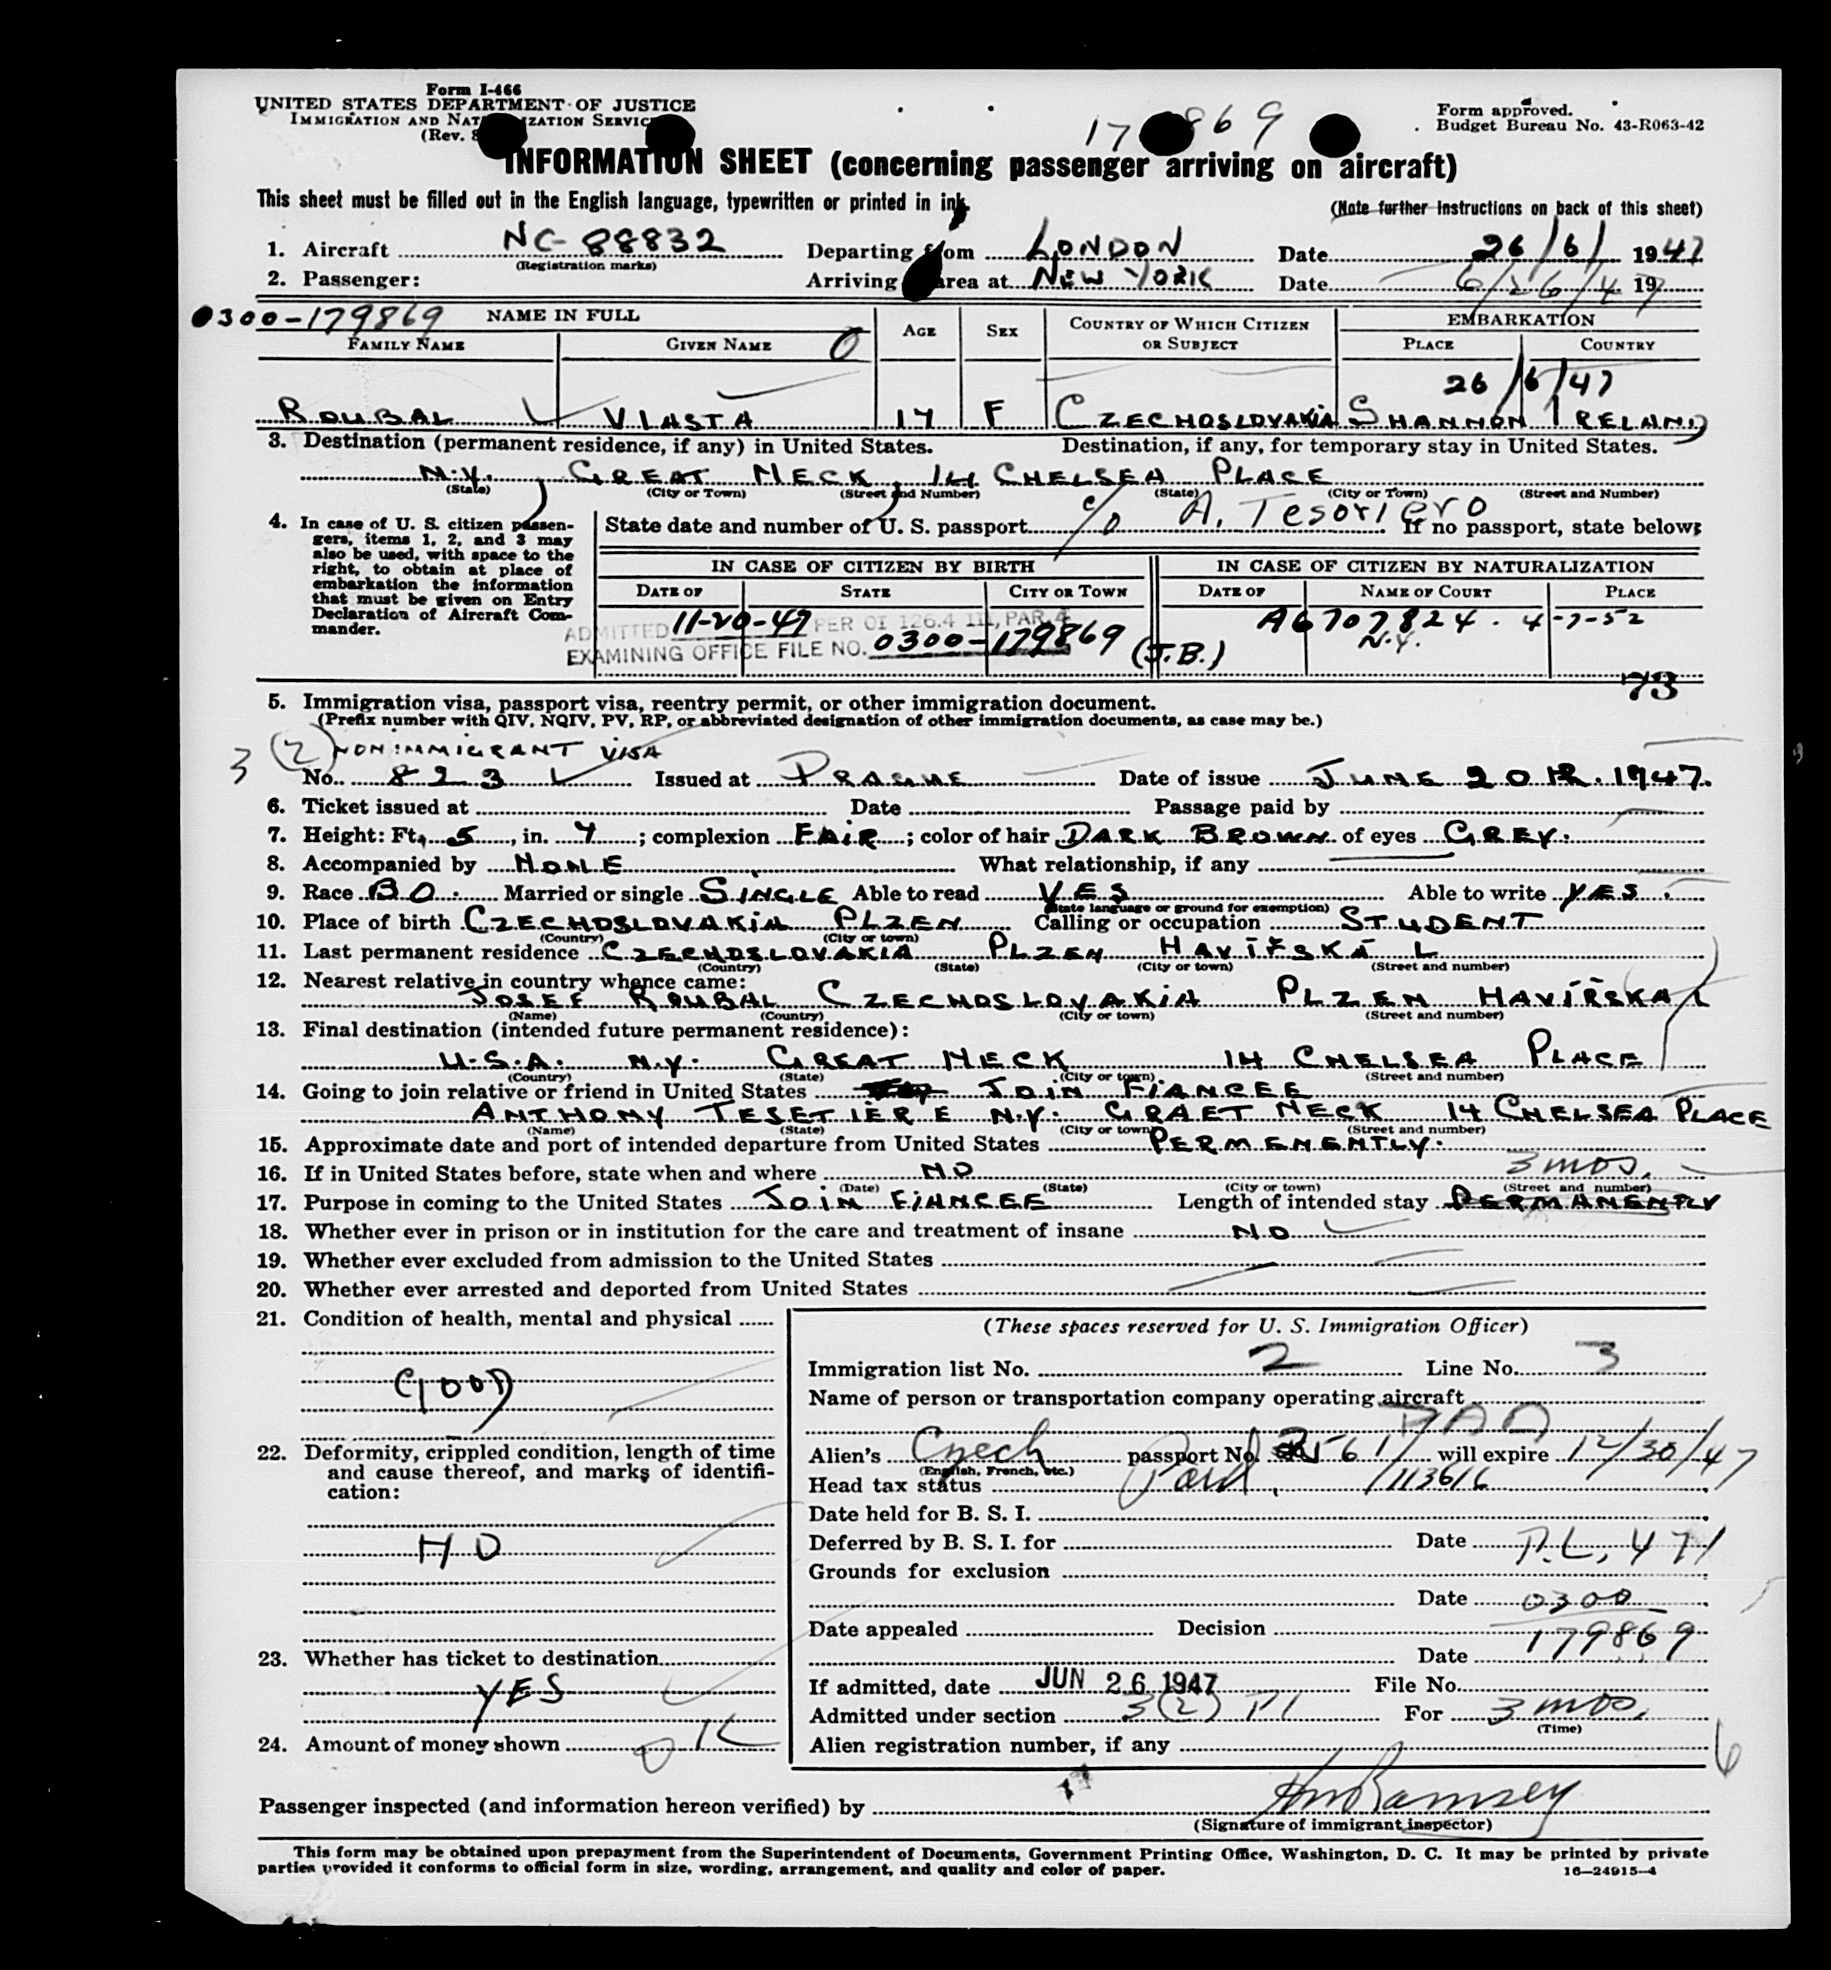 Form I-466
UNITED STATES DEPARTMENT OF JUSTICE
IMMIGRATION AND NATURALIZATION SERVICE
(Rev.
Form approved.
Budget Bureau No. 43-R063-42
INFORMATION SHEET (concerning passenger arriving on aircraft)
This sheet must be filled out in the English language, typewritten or printed in ink.
(Note further instructions on back of this sheet)
1. Aircraft NC-88832 Departing from LONDON Date 26/6/ 1947
(Registration marks)
2. Passenger: Arriving area at NEW YORK Date 6/26/47 19
0300-179869 NAME IN FULL AGE SEX COUNTRY OF WHICH CITIZEN OR SUBJECT EMBARKATION
FAMILY NAME GIVEN NAME 0 PLACE COUNTRY
26/6/47
ROUBAL VLASTA 17 F CZECHOSLOVAKIA SHANNON IRELAND
3. Destination (permanent residence, if any) in United States. Destination, if any, for temporary stay in United States.
N.Y. GREAT NECK, 14 CHELSEA PLACE
(State) (City or Town) (Street and Number) (State) (City or Town) (Street and Number)
c/o A. Tesoriero
4. In case of U. S. citizen passengers, items 1, 2, and 3 may also be used, with space to the right, to obtain at place of embarkation the information that must be given on Entry Declaration of Aircraft Commander.
State date and number of U. S. passport If no passport, state below:
IN CASE OF CITIZEN BY BIRTH IN CASE OF CITIZEN BY NATURALIZATION
DATE OF STATE CITY OR TOWN DATE OF NAME OF COURT PLACE
ADMITTED 11-20-47 PER OI 126.4 III, PAR. 4 A6707824. 4-7-52
EXAMINING OFFICE FILE NO. 0300-179869 (J.B.) N.Y.
73
5. Immigration visa, passport visa, reentry permit, or other immigration document.
(Prefix number with QIV, NQIV, PV, RP, or abbreviated designation of other immigration documents, as case may be.)
3 (2) NONIMMIGRANT VISA
No. 823 Issued at PRAGUE Date of issue JUNE 20th. 1947.
6. Ticket issued at Date Passage paid by
7. Height: Ft., 5, in. 4; complexion FAIR; color of hair DARK BROWN of eyes GREY.
8. Accompanied by NONE What relationship, if any
9. Race BO. Married or single SINGLE Able to read YES Able to write YES.
(State language or ground for exemption)
10. Place of birth CZECHOSLOVAKIA PLZEN Calling or occupation STUDENT
(Country) (City or town)
11. Last permanent residence CZECHOSLOVAKIA PLZEN HAVÍŘSKÁ 1
(Country) (State) (City or town) (Street and number)
12. Nearest relative in country whence came:
JOSEF ROUBAL CZECHOSLOVAKIA PLZEN HAVÍŘSKÁ 1
(Name) (Country) (City or town) (Street and number)
13. Final destination (intended future permanent residence):
U.S.A. N.Y. GREAT NECK 14 CHELSEA PLACE
(Country) (State) (City or town) (Street and number)
14. Going to join relative or friend in United States JOIN FIANCEE
ANTHONY TESETIERE N.Y. GRAET NECK 14 CHELSEA PLACE
(Name) (State) (City or town) (Street and number)
15. Approximate date and port of intended departure from United States PERMENENTLY.
16. If in United States before, state when and where NO 3 mos.
(Date) (State) (City or town) (Street and number)
17. Purpose in coming to the United States JOIN FIANCEE Length of intended stay PERMANENTLY
18. Whether ever in prison or in institution for the care and treatment of insane NO
19. Whether ever excluded from admission to the United States
20. Whether ever arrested and deported from United States
21. Condition of health, mental and physical
GOOD
22. Deformity, crippled condition, length of time and cause thereof, and marks of identification:
NO
23. Whether has ticket to destination
YES
24. Amount of money shown OK
(These spaces reserved for U. S. Immigration Officer)
Immigration list No. 2 Line No. 3
Name of person or transportation company operating aircraft
PAA
Alien's Czech passport No. 2561/ will expire 12/30/47
(English, French, etc.)
Head tax status Paid, 113616
Date held for B. S. I.
Deferred by B. S. I. for Date P.L. 471
Grounds for exclusion
Date 0300
Date appealed Decision 179869
Date
If admitted, date JUN 26 1947 File No.
Admitted under section 3(2) For 3 mos.
(Time)
Alien registration number, if any
Passenger inspected (and information hereon verified) by Ramsey
(Signature of immigrant inspector)
This form may be obtained upon prepayment from the Superintendent of Documents, Government Printing Office, Washington, D. C. It may be printed by private
parties provided it conforms to official form in size, wording, arrangement, and quality and color of paper. 16—24915-4